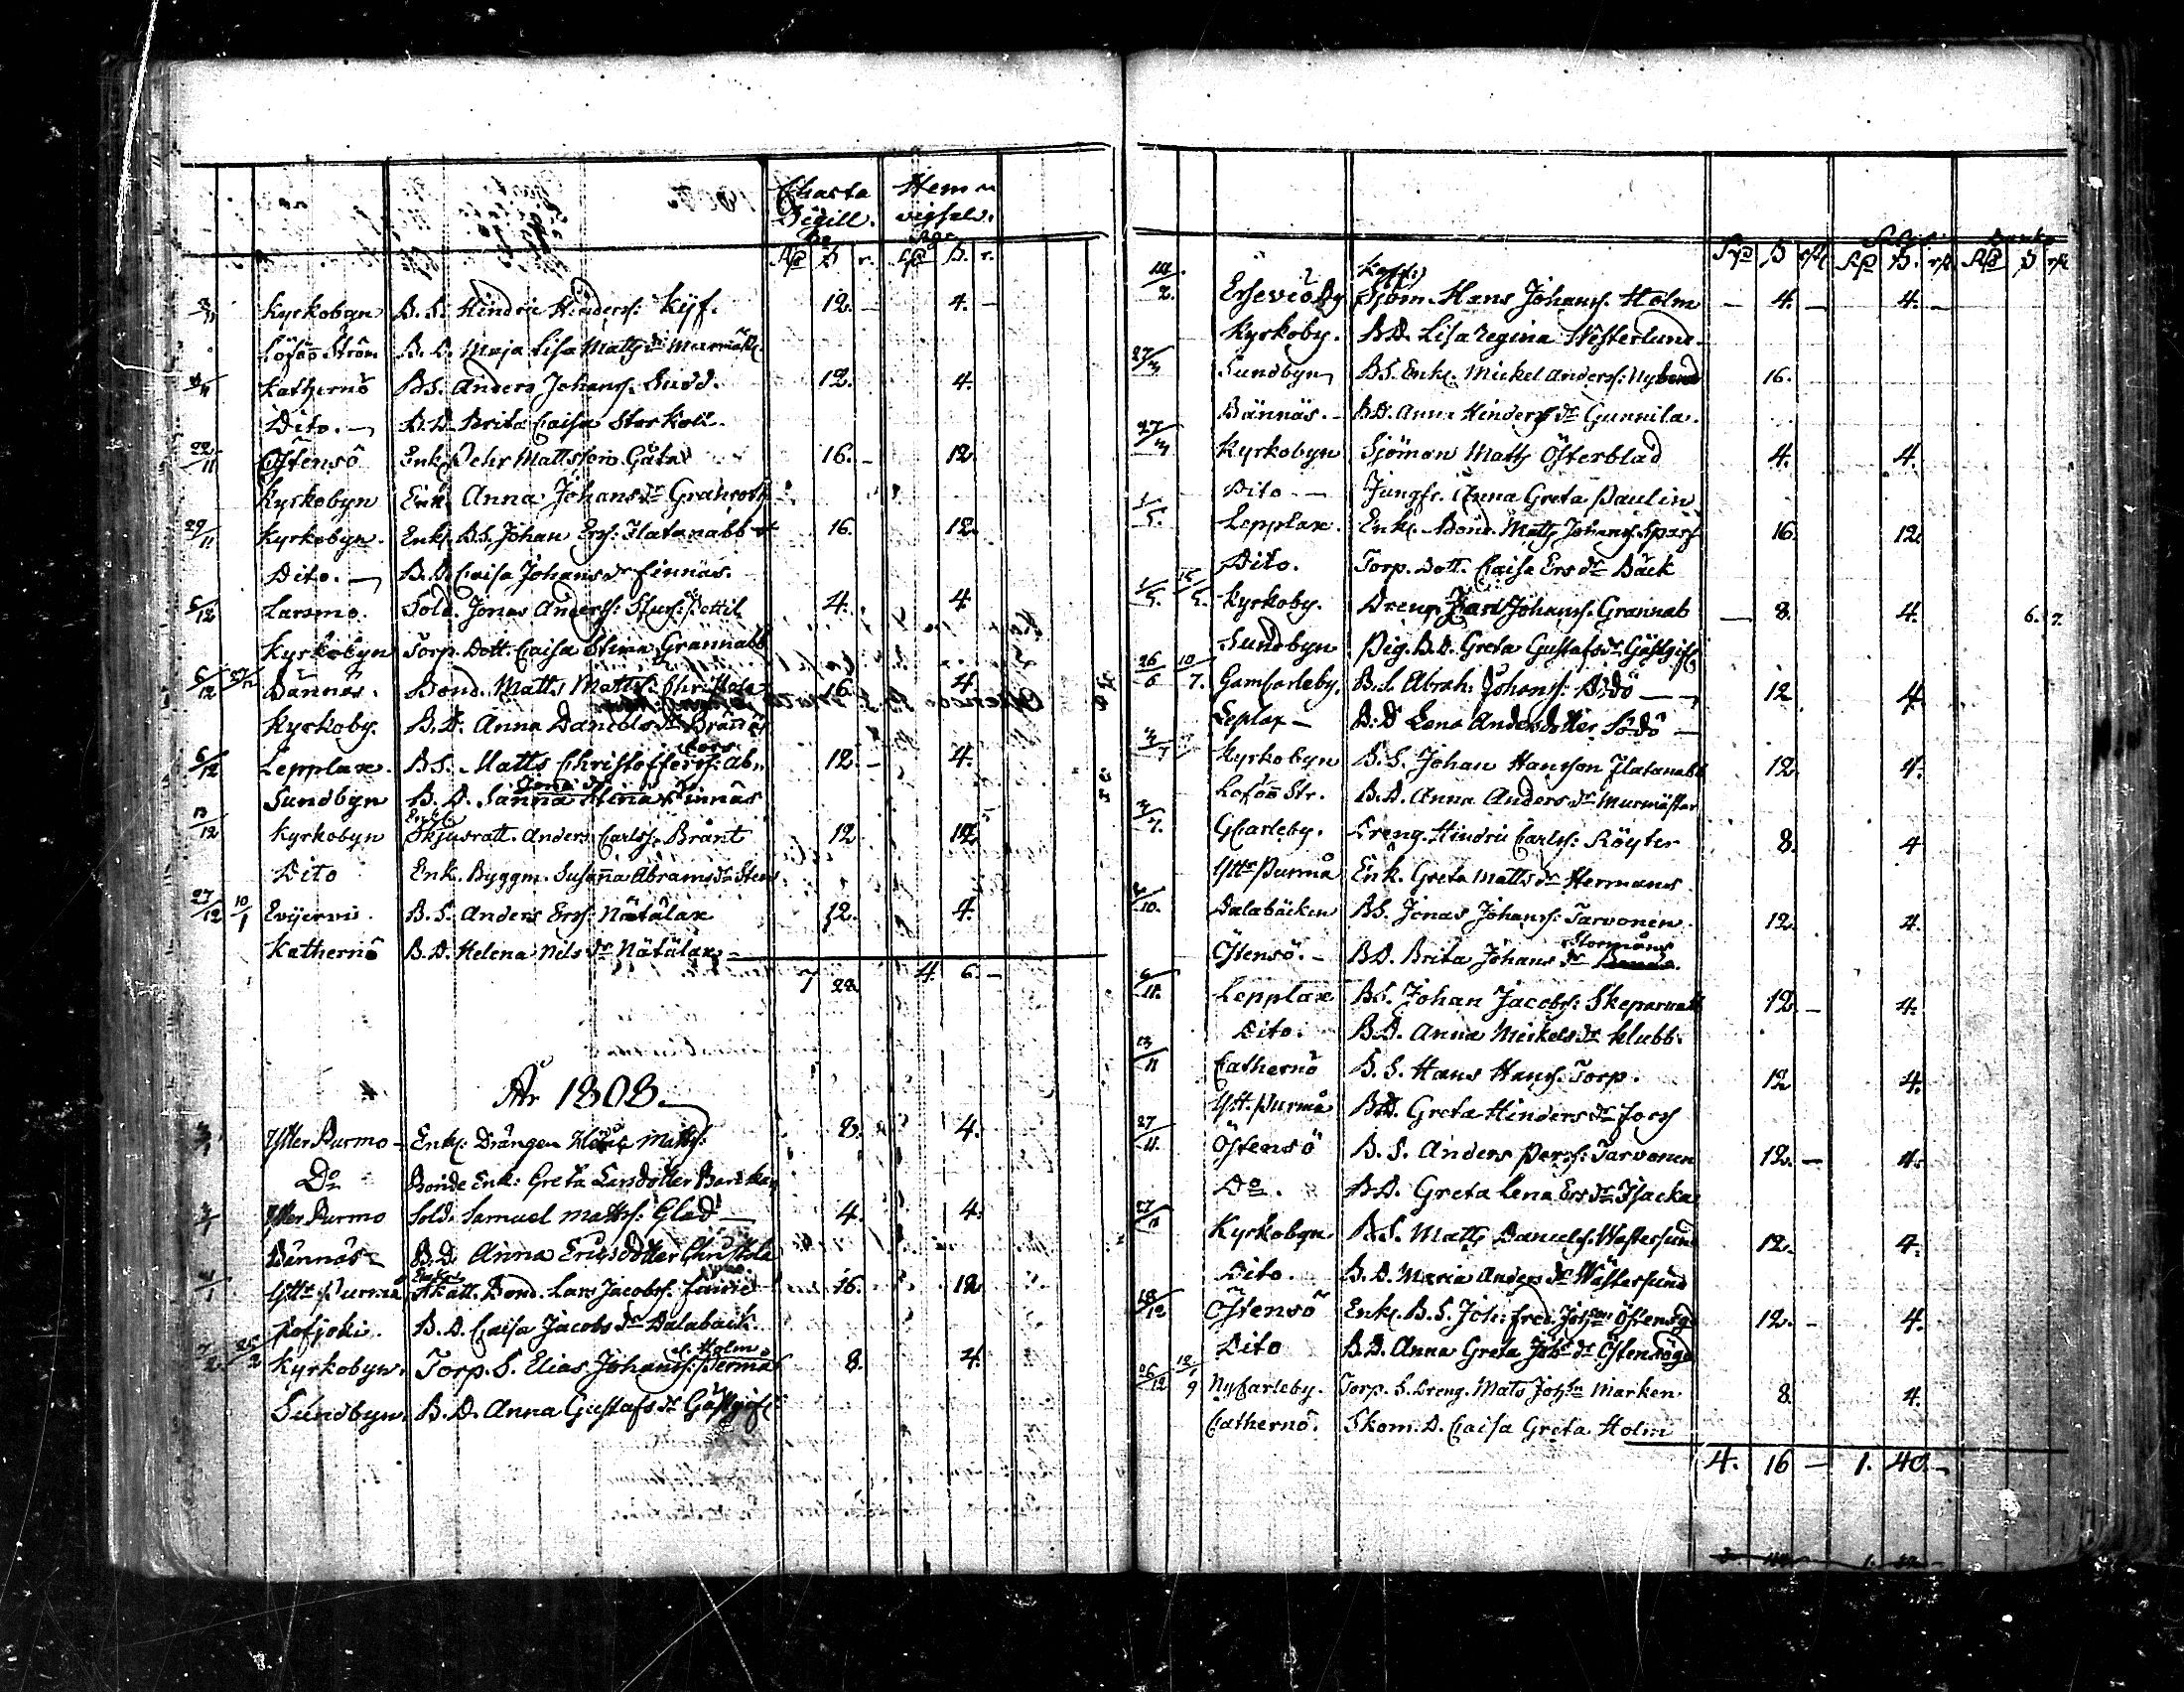 Charta Hem
Sigill. vigsel.
3/11 Kyrkobyn B. S. Hindric Hinders: Kyf. 12. – 4. –
Löföö Ström B. D. Maja Lisa Matts dr Murmäst.
Katternö B S. Anders Johans. Sudd. 12. 4.
Dito. – B. D. Brita Caisa Storkål.
22/11 Östensö Enkl. Pehr Mattsson Gåta 16. – 12.
Kyrkobyn Enk. Anna Johans dr Granroth
29/11 Kyrkobyn. Enkl. B S. Johan Ers: Flatanabb 16. 12.
Dito. – B. D. Caisa Johans dr Finnäs.
5/12 Larsmo. Sold. Jonas Anders: Pettil 4. 4
Kyrkobyn Torp. Dott. Caisa Stina Grannabb
6/12 27/12 Bännäs. Bond. Matts Matts: 16. 4
Kyrkoby. B. D. Anna Daniels dr Brännäs
6/12 Lepplax. B S. Matts Christoffers: 12. – 4.
Sundbyn B. D. Sanna Stina Finnäs
13/12 Kyrkobyn Skjutsratt. Anders Carls. Bränt 12. 12
Dito Enk. Byggm. Susanna Abrams dr Sten
27/12 10/1 Evijervi. B. S. Anders Ers: Nätälax 12. 4.
Katternö B. D. Helena Nils dr Nätälax –
7 28 4. 6. –
År 1808.
Ytter Purmo – Enkl: Drängen Matts: 8. 4.
Do Bonde Enk: Greta Larsdotter
Ytter Purmo Sold. Samuel Matts: Glad – 4. 4.
Bännäs B. D. Anna Ericsdotter
Ytter Purmå Skatt. Bond. Lars Jacobs: 16. 12
B. D. Caisa Jacobs dr Dalabäck
7/2 25/2 Kyrkobyn. Torp. S. Elias Johans: Holm 8. 4.
Sundbyn. B. D. Anna Gustafs dr Gästgifs
14/2. Sjöm. Hans Johans. Holm – 4. – 4. –
Kyrkoby. B D. Lisa Regina Westerlund
27/3 Sundbyn B S. Enkl. Mickel Anders: Nybond 16.
Bännäs. – B D. Anna Hinders dr Gunnila.
27/3 Kyrkobyn Sjöman Matts Österblad 4. 4.
Dito – Jungfr. Anna Greta Paulin
1/5. Lepplax. Enkl. Bond. Matts Johans. 16. 12
Dito. Torp. Dott. Caisa Ers dr Bäck
1/5. 15/5. Kyrkoby. Dreng Karl Johans. Grannab – 8. 4. 6. 7.
Sundbyn Pig. B. D. Greta Gustafs dr Gästgifs
26/6 10/7. Gamcarleby. B. S. Abrah. Johans: 12 4.
Leplax – B. D Lena Andersdotter Södö –
3/7 Kyrkobyn B. S. Johan Hansson Flatanabb 12 4.
Loföö Str. B. D. Anna Anders dr Murmästar
3/7. GCarleby. Dreng. Hindric Carls: Röyter 8. 4
Ytt Purmå Enk. Greta Matts dr Hermans
2/10. Dalabäcken B S. Jonas Johans: Tarvonen 12. 4.
Östensö. – B D. Brita Johans dr Stormåns
6/11. Lepplax B S. Johan Jacobs: Skeparnabb 12. – 4.
Dito. B. D. Anna Mickels dr Klubb.
13/11 Catternö B. S. Hans Hans. Torp. 12 4.
Ytt. Purmå B D. Greta Hinders dr Fors
27/11. Östensö B. S. Anders Pers: Tarvonen 12. – 4.
Do. B. D. Greta Lena Ers dr Isacka
27/11 Kyrkobyn B. S. Matts Daniels. Westersund 12. 4.
Dito. B. D. Maria Anders dr Wästersund
18/12 Östensö Enkl. B. S. Joh: Fred. Joh:son Östensö 12. – 4.
Dito B. D. Anna Greta Joh:s dr Östensö
26/12 12/9 NyCarleby. Torp. S. Dreng. Mats Johsn Marken 8. 4.
Catternö. Skom. D. Caisa Greta Holm
4. 16 – 1. 40. –